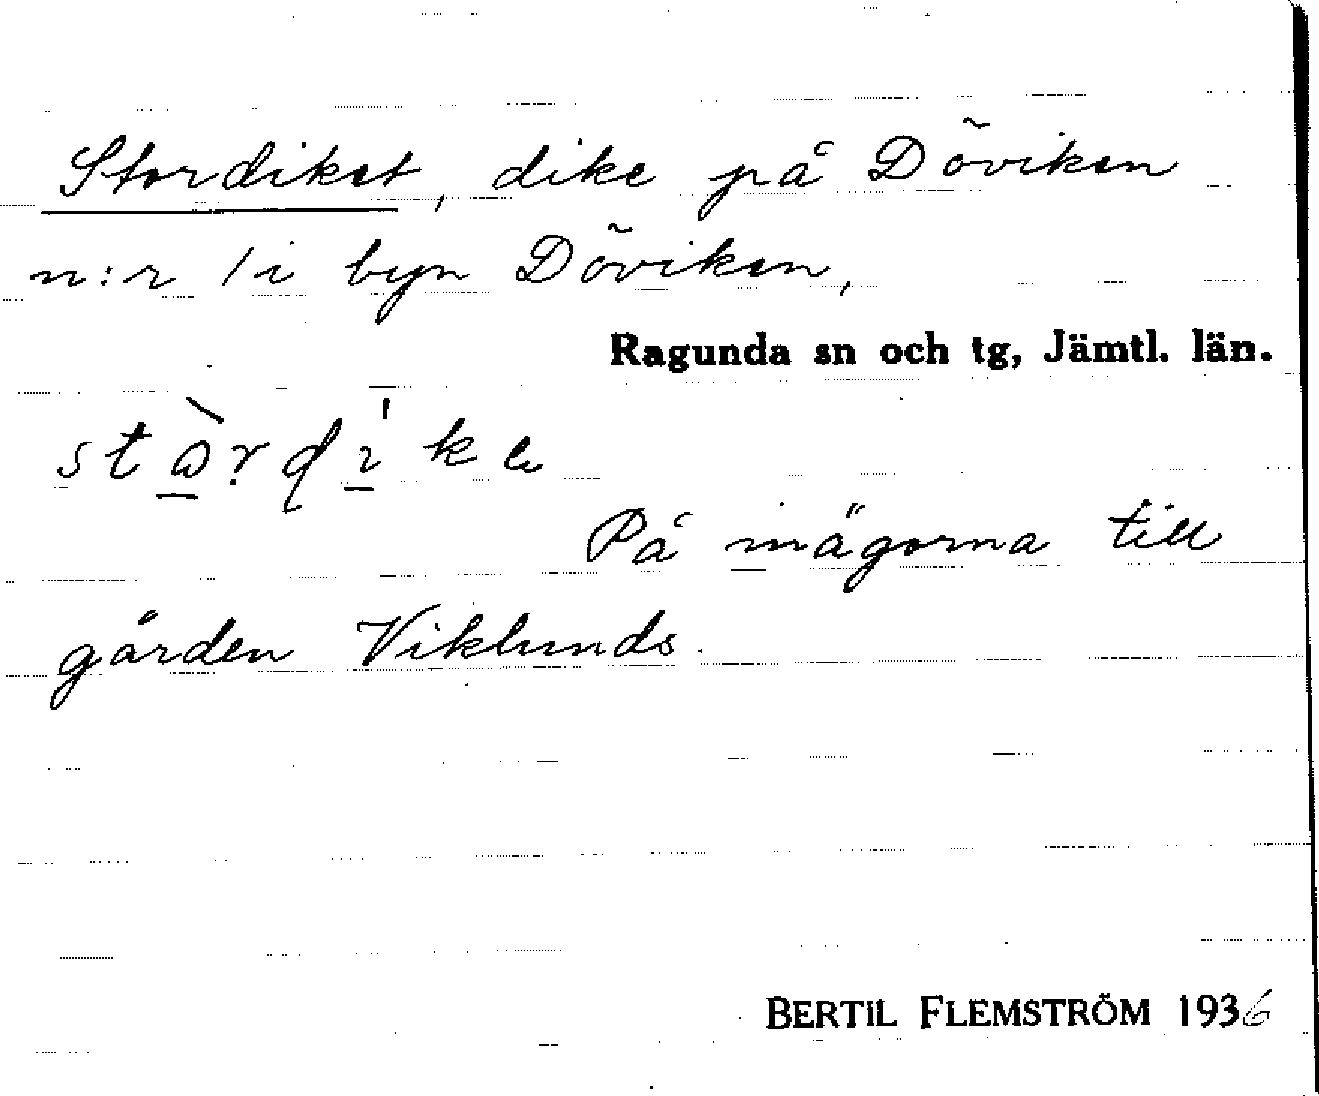 Stordiket, dike på Döviken
n:r 1 i byn Döviken,
Ragunda sn och tg, Jämtl. län.
På mägorna till
gården Viklunds.
BERTIL FLEMSTRÖM 1936